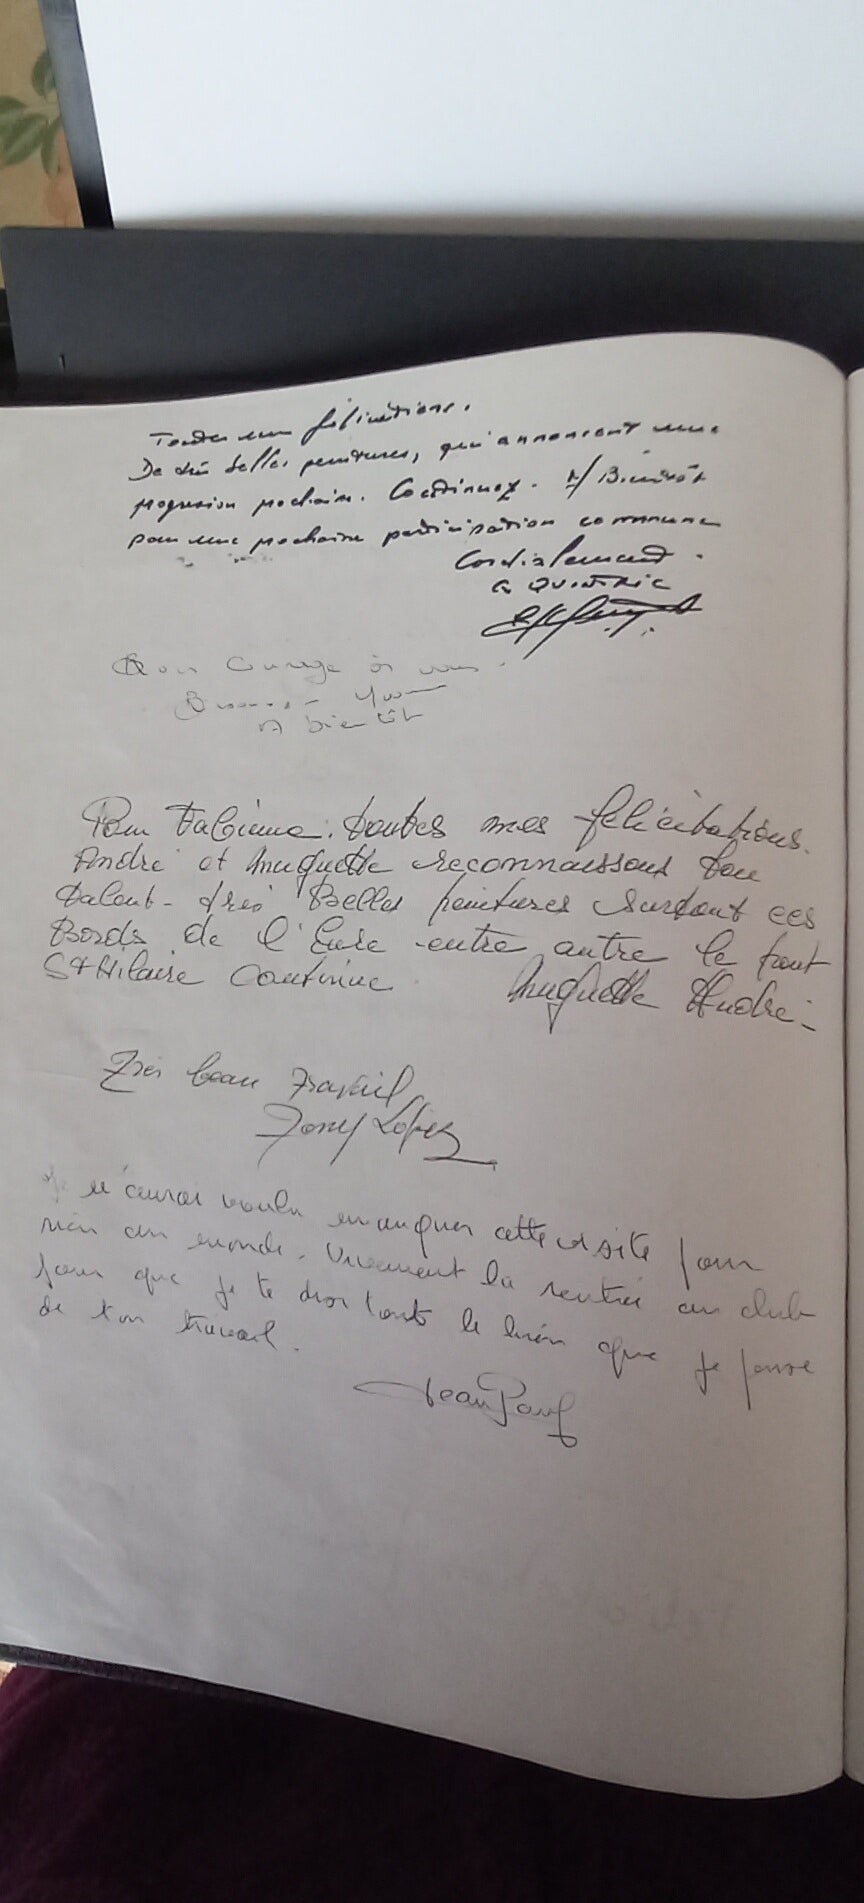 Toutes mes félicitations.
De très belles peintures, qui annoncent une
progression prochaine. Continuez. A/ Bientôt
pour une prochaine participation commune
Cordialement.
Bon Courage à vous.
Yvon
A bientôt
Pour Fabienne. toutes mes félicitations.
André et Muguette reconnaissons ton
talent - très Belles peintures surtout ces
Bords de l'Eure entre autre le pont
St Hilaire Continue Muguette André -
Très beau travail
Tony Lopez
Je n'aurai voulu manquer cette visite pour
rien au monde. Vivement la rentrée au club
pour que je te dise tout le bien que je pense
de ton travail.
Jean Paul